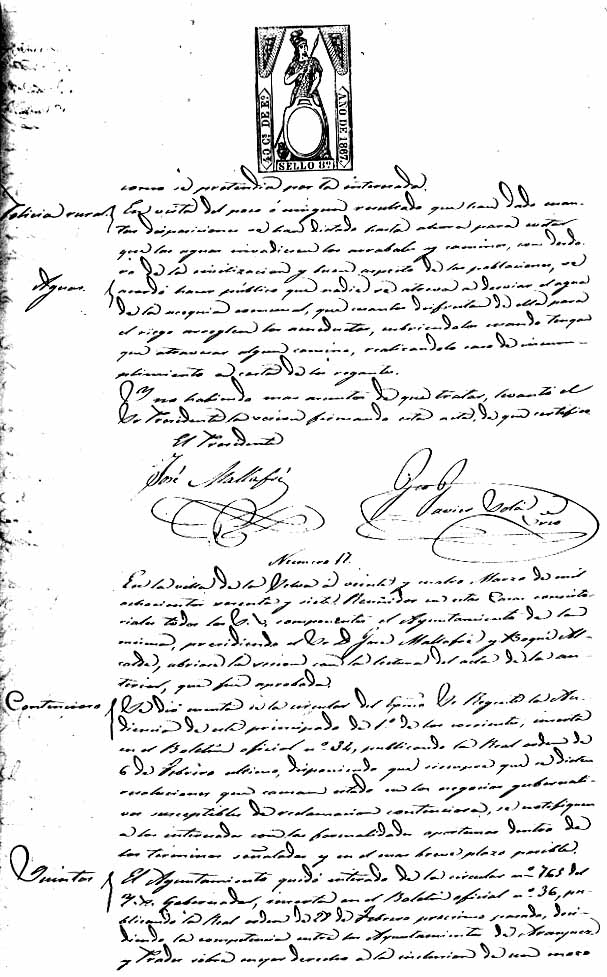 40 Cs. DE Eo.
AÑO DE 1867.
SELLO 8º
como se pretendia por la interesada.
Policia rural
En vista del poco ó ningun resultado que han dado cuan-
tas disposiciones se han dictado hasta ahora para evitar
que las aguas invadiesen los arrabales y caminos, con desdo-
Aguas.
ro de la civilizacion y buen aspecto de las poblaciones, se
acordó hacer público que nadie se atreva a desviar el agua
de la acequia comunal, que cuantos disfrutan de ella para
el riego arreglen los acueductos, cubriendolos cuando tengan
que atravesar algun camino, realizandolo caso de incum-
plimiento a costa de los regantes.
Y no habiendo mas asuntos de que tratar, levantó el
Sr. Presidente la sesion firmando esta acta, de que certifico
El Presidente
José Mallafré
Javier
Srio
Numero 17.
En la villa de la Selva a veinte y cuatro Marzo de mil
ochocientos sesenta y siete: Reunidos en estas Casas consisto-
riales todos los S.S. componentes el Ayuntamiento de la
misma, presidiendo el Sr. D. José Mallafré y Al-
calde, abriose la sesion con la lectura del acta de la an-
terior, que fue aprobada.
Contencioso
Se dió cuenta de la circular del Excmo. Sr. Regente de la Au-
diencia de este principado de 1º de los corrientes, inserta
en el Boletin oficial nº 34, publicando la Real orden de
6 de Febrero ultimo, disponiendo que siempre que se dicten
resoluciones que causen estado en los negocios gubernati-
vos susceptibles de reclamacion contenciosa, se notifiquen
a los interesados con las formalidades oportunas dentro de
los terminos señalados y en el mas breve plazo posible.
Quintas
El Ayuntamiento quedó enterado de la circular nº 765 del
Gobernador, inserta en el Boletin oficial nº 36, pu-
blicando la Real orden de 27 de Febrero proximo pasado, deci-
diendo la competencia entre los Ayuntamientos de Aranjuez
y Prades sobre mejor derecho a la inclusion de un mozo